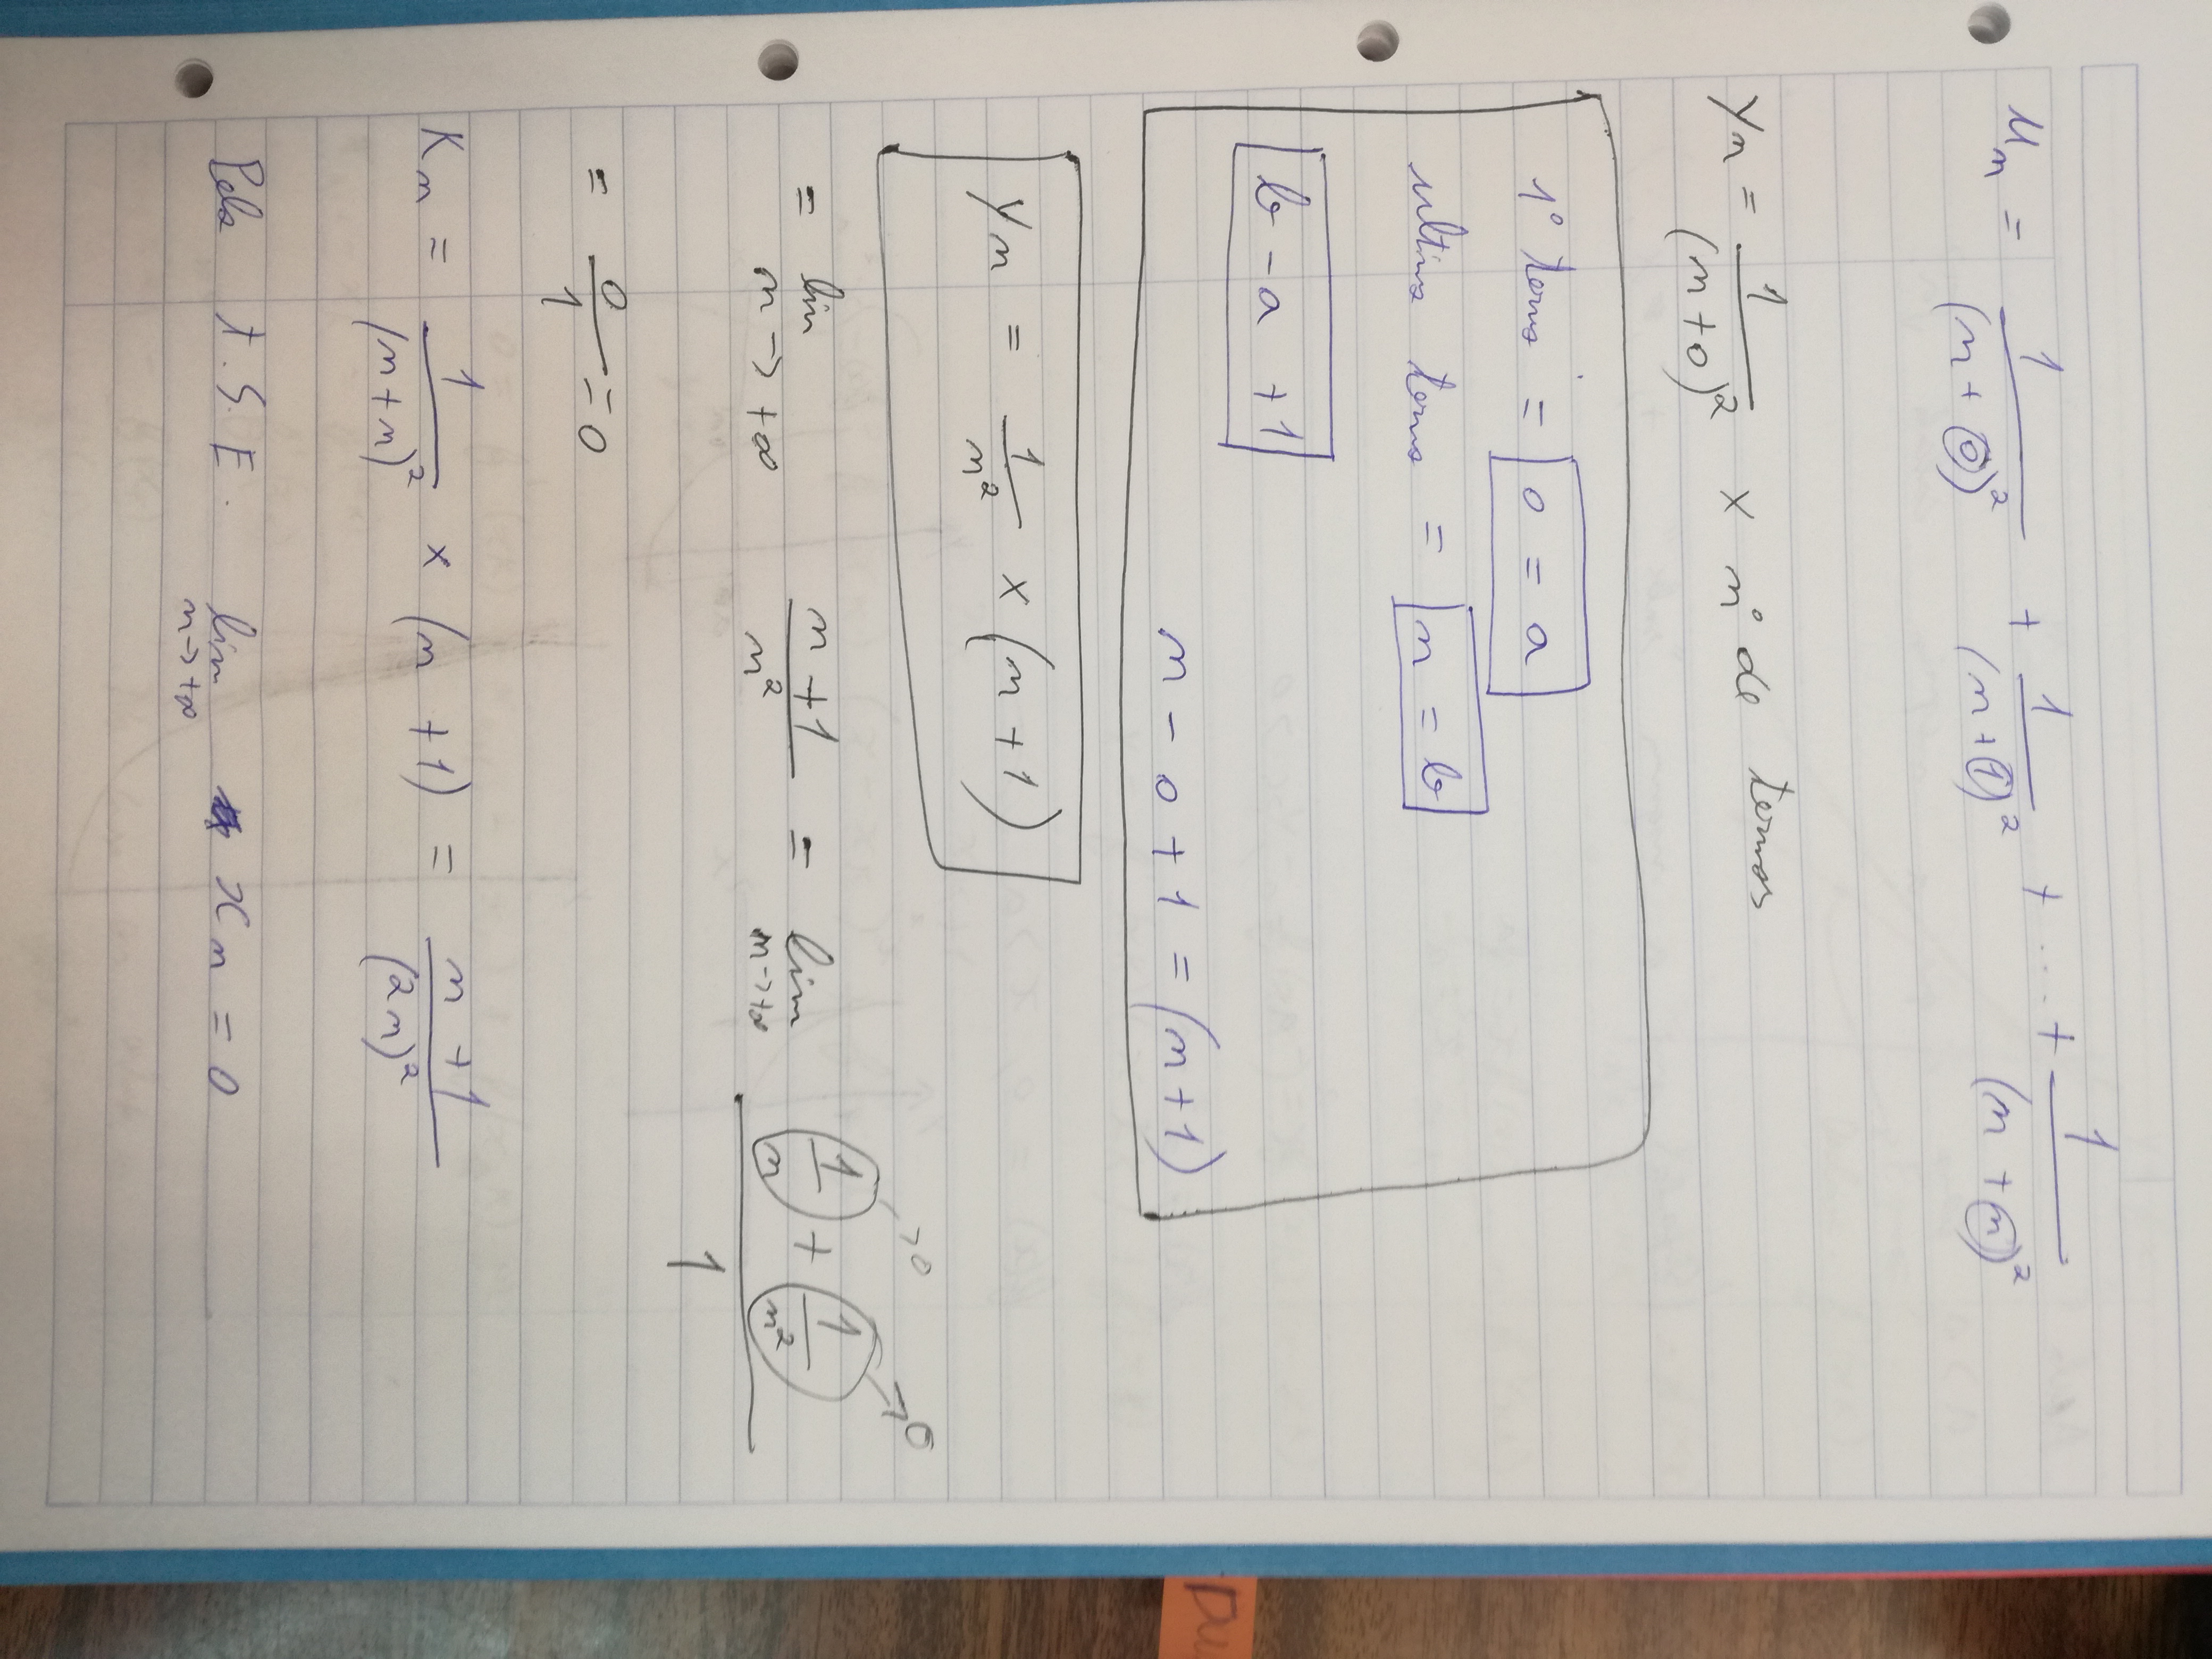 u_n = 1/(n+0)² + 1/(n+1)² + ... + 1/(n+n)²
y_n = 1/(n+0)² × nº de termos
1º termo = 0 = a
ultimo termo = n = b
b - a + 1
n - 0 + 1 = (n+1)
y_n = 1/n² × (n+1)
= lim n→+∞ (n+1)/n² = lim n→+∞ (1/n + 1/n²)/1 →0 →0
= 0/1 = 0
K_n = 1/(n+n)² × (n+1) = (n+1)/(2n)²
Pela T.S.E. lim n→+∞ x_n = 0
Du